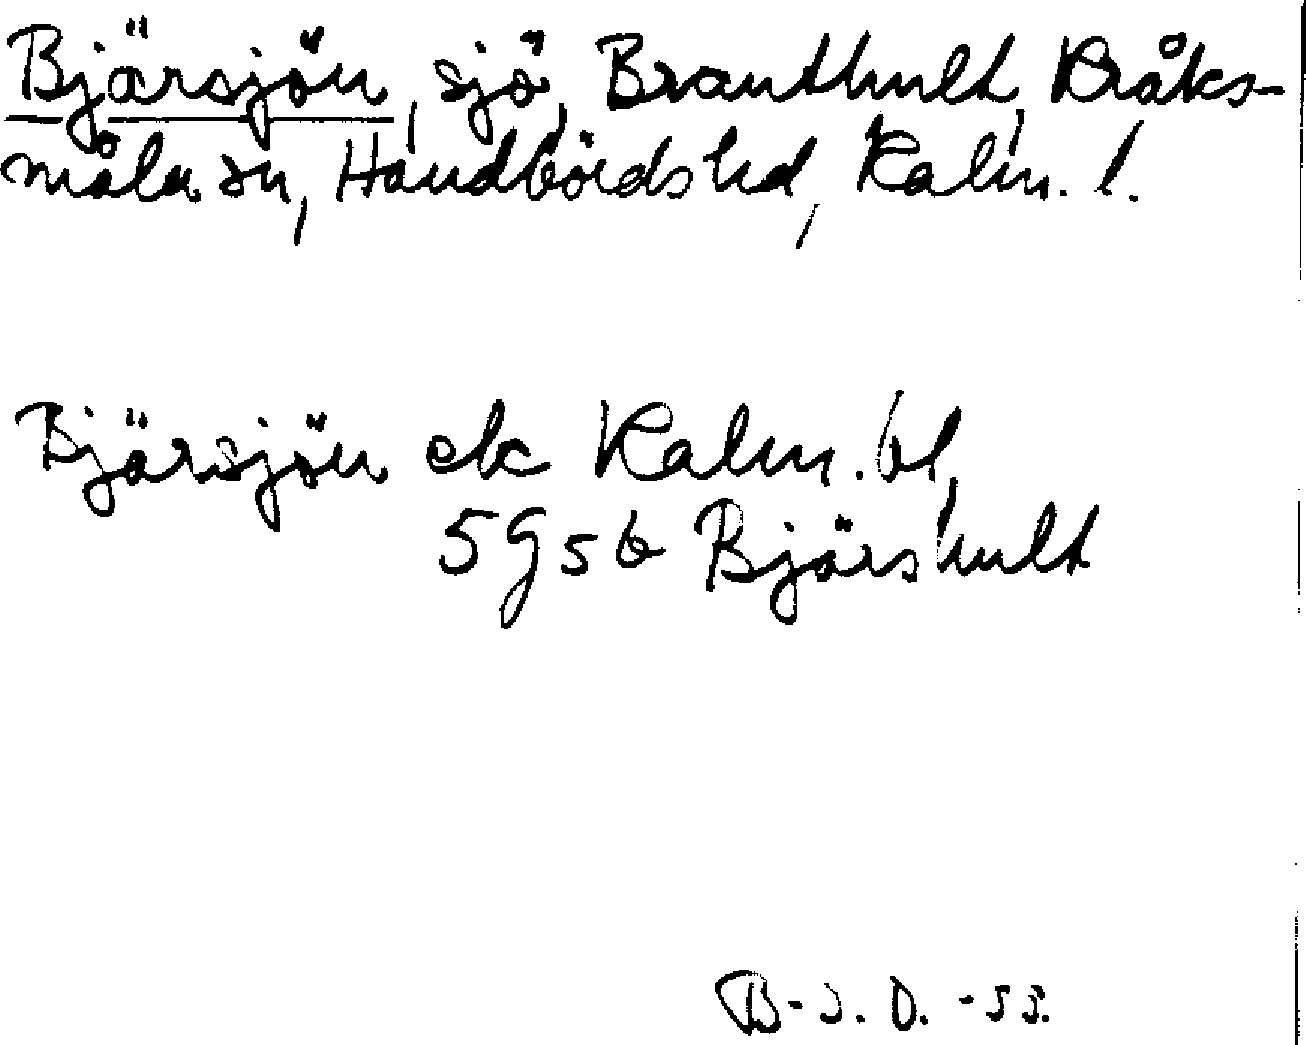 Bjärsjön, sjö, Brauthult, Kråks-
måla sn, Handbörds hd, Kalm. l.
Bjärsjön ek Kalm. bl,
5 G 5 b Bjärshult
B-J. D. -53.